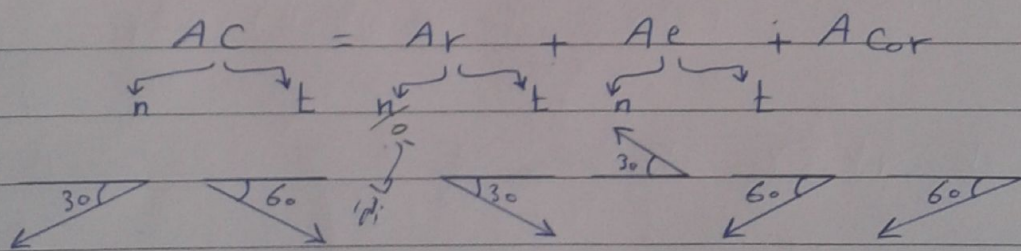 AC = Ar + Ae + A Cor
n t n t n t
0
30 60 30 30 60 60